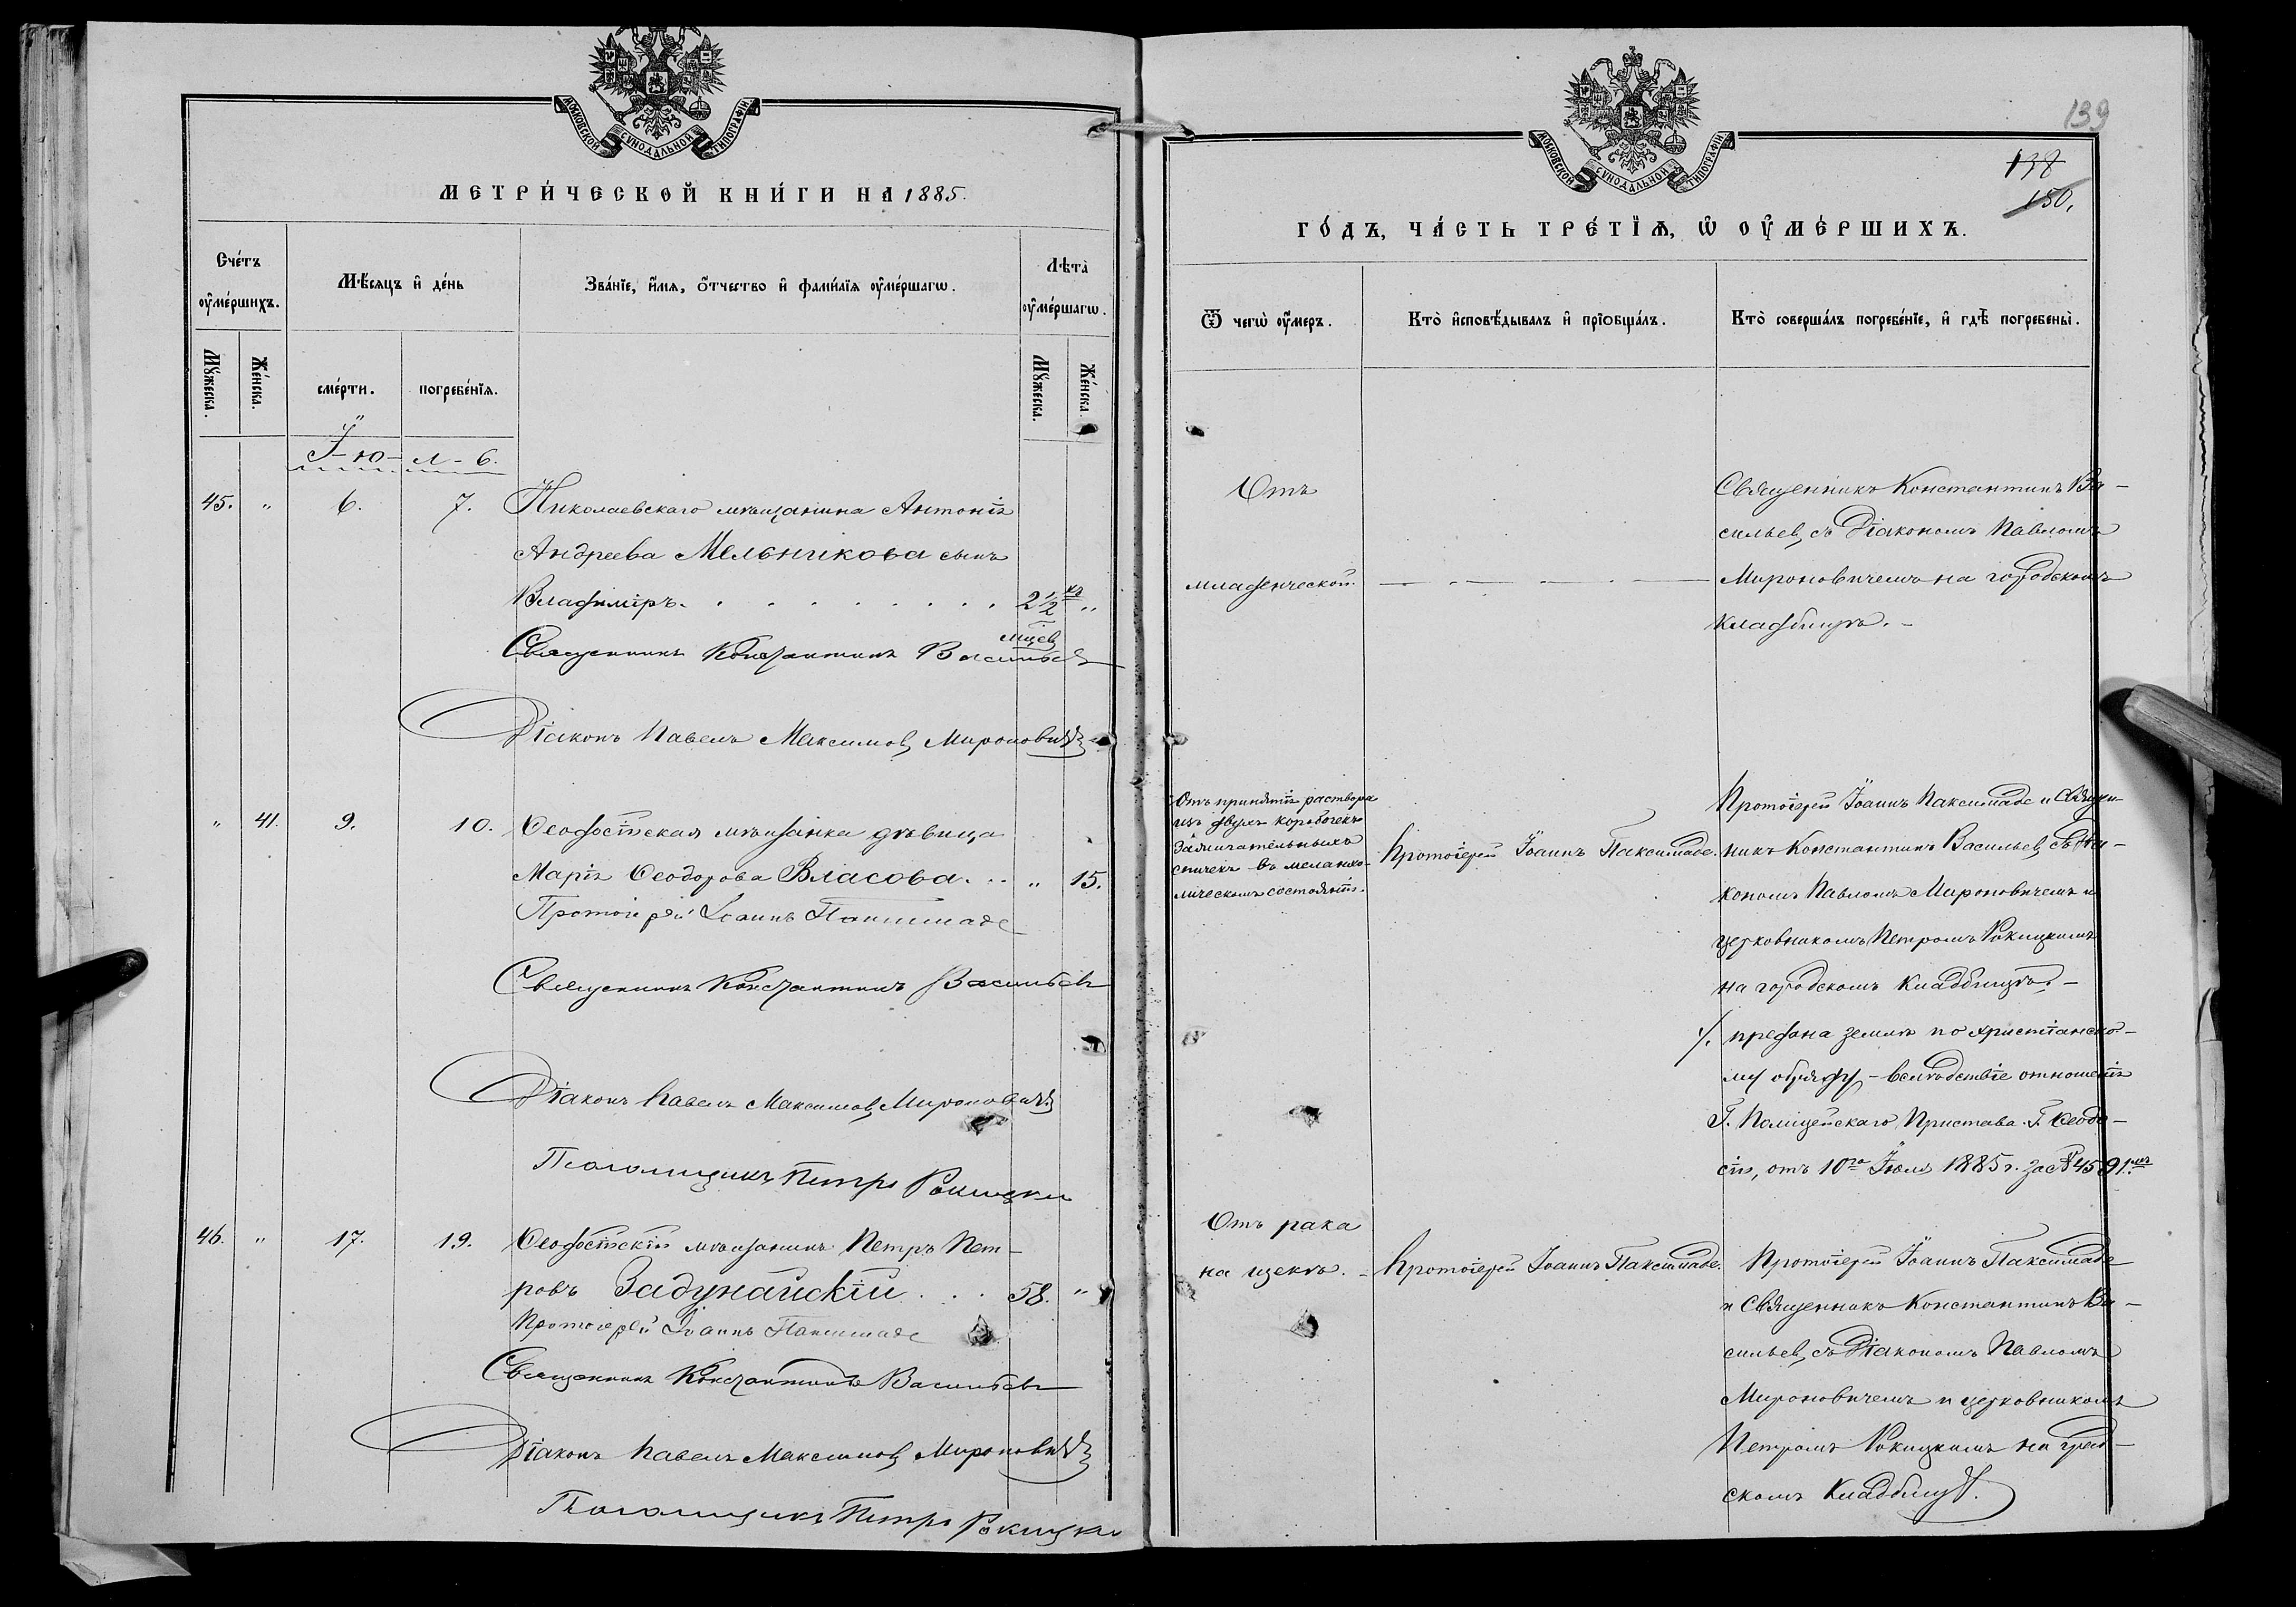 МОСКОВСКОЙ СѴНОДАЛЬНОЙ ТИПОГРАФІИ
МЕТРИ́ЧЕСКОЙ КНИ́ГИ НА 1885.
Сче́тъ оу҆ме́ршихъ.
Мѣ́сяцъ и҆ де́нь
Зва́нїе, и҆́мѧ, ѻ҆́тчество и҆ фами́лїѧ оу҆ме́ршагѡ.
Лѣта̀ оу҆ме́ршагѡ.
Мꙋ́жеска.
Же́нска.
сме́рти.
погребе́нїѧ.
Мꙋ́жеска.
Же́нска.
І-ю-л-ь.
45. " 6. 7. Николаевскаго мѣщанина Антонія
Андреева Мельникова сынъ
Владиміръ. . . . . . . . . 2½ "
мцев
Священникъ Константинъ Васильевъ
Діаконъ Павелъ Максимов Мироновичъ
" 41. 9. 10. Ѳеодосійская мѣщанка дѣвица
Марія Ѳеодорова Власова. . . " 15.
Протоіерей Іоаннъ Паксимаде
Священникъ Константинъ Васильевъ
Діаконъ Павелъ Максимов Мироновичъ
Псаломщикъ Петръ Рокицки
46. " 17. 19. Ѳеодосійскій мѣщанинъ Петръ Пет-
ровъ Задунайскій . . . 58. "
Протоіерей Іоаннъ Паксимаде
Священникъ Константинъ Васильевъ
Діаконъ Павелъ Максимов Мироновичъ
Псаломщикъ Петръ Рокицки
МОСКОВСКОЙ СѴНОДАЛЬНОЙ ТИПОГРАФІИ
139
138
150.
ГО́ДЪ, ЧА́СТЬ ТРЕ́ТЇѦ, Ѡ҆ ОУ҆МЕ́РШИХЪ.
Ѿ чегѡ̀ оу҆́меръ.
Кто̀ и҆сповѣ́дывалъ и҆ прїѻбща́лъ.
Кто̀ соверша́лъ погребе́нїе, и҆ гдѣ̀ погребены̀.
Отъ
младенческой.
Священникъ Константинъ Ва-
сильев, съ Діакономъ Павломъ
Мироновичемъ на городскомъ
кладбищѣ. -
Отъ принятія раствора
изъ двухъ коробочекъ
зажигательныхъ
спичекъ въ меланхо-
лическомъ состояніи.
Протоіерей Іоаннъ Паксимаде.
Протоіерей Іоаннъ Паксимаде и Священ-
никъ Константинъ Васильев, съ Діа-
кономъ Павломъ Мироновичемъ и
церковникомъ Петромъ Рокицкимъ
на городскомъ Кладбищѣ. -
./. предана землѣ по христіанско-
му обряду, - вслѣдствіе отношенія
Г. Полицейскаго Пристава г. Ѳеодо-
сіи, отъ 10го Іюля 1885 г. за № 4591.
Отъ рака
на щекѣ. -
Протоіерей Іоаннъ Паксимаде.
Протоіерей Іоаннъ Паксимаде
и Священникъ Константинъ Ва-
сильев, съ Діакономъ Павломъ
Мироновичемъ и церковникомъ
Петромъ Рокицкимъ на град-
скомъ Кладбищѣ.